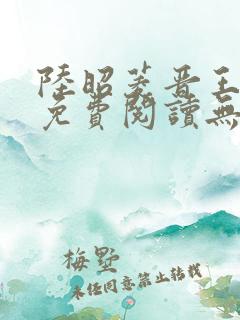 陸昭菱晋王
免費閱讀無
梅墅
未经同意禁止转载